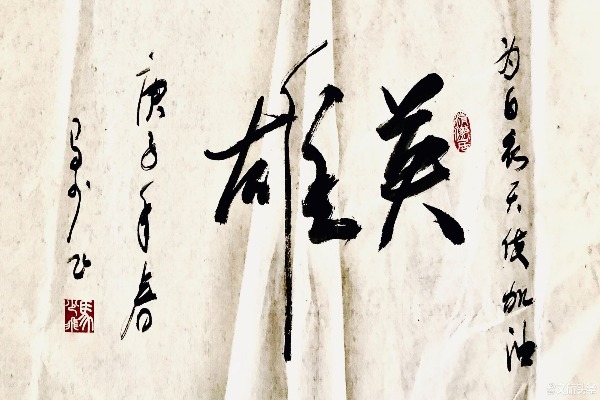 为白衣天使加油
英雄
庚子年春
马少飞